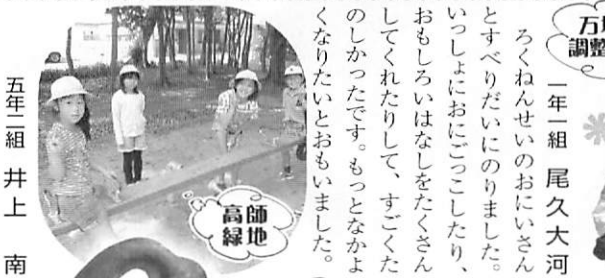 万場
調整
一年一組　尾久大河
ろくねんせいのおにいさん
とすべりだいにのりました。
いっしょにおにごっこしたり、
おもしろいはなしをたくさん
してくれたりして、すごくた
のしかったです。もっとなかよ
くなりたいとおもいました。
高師
緑地
五年二組　井上　南